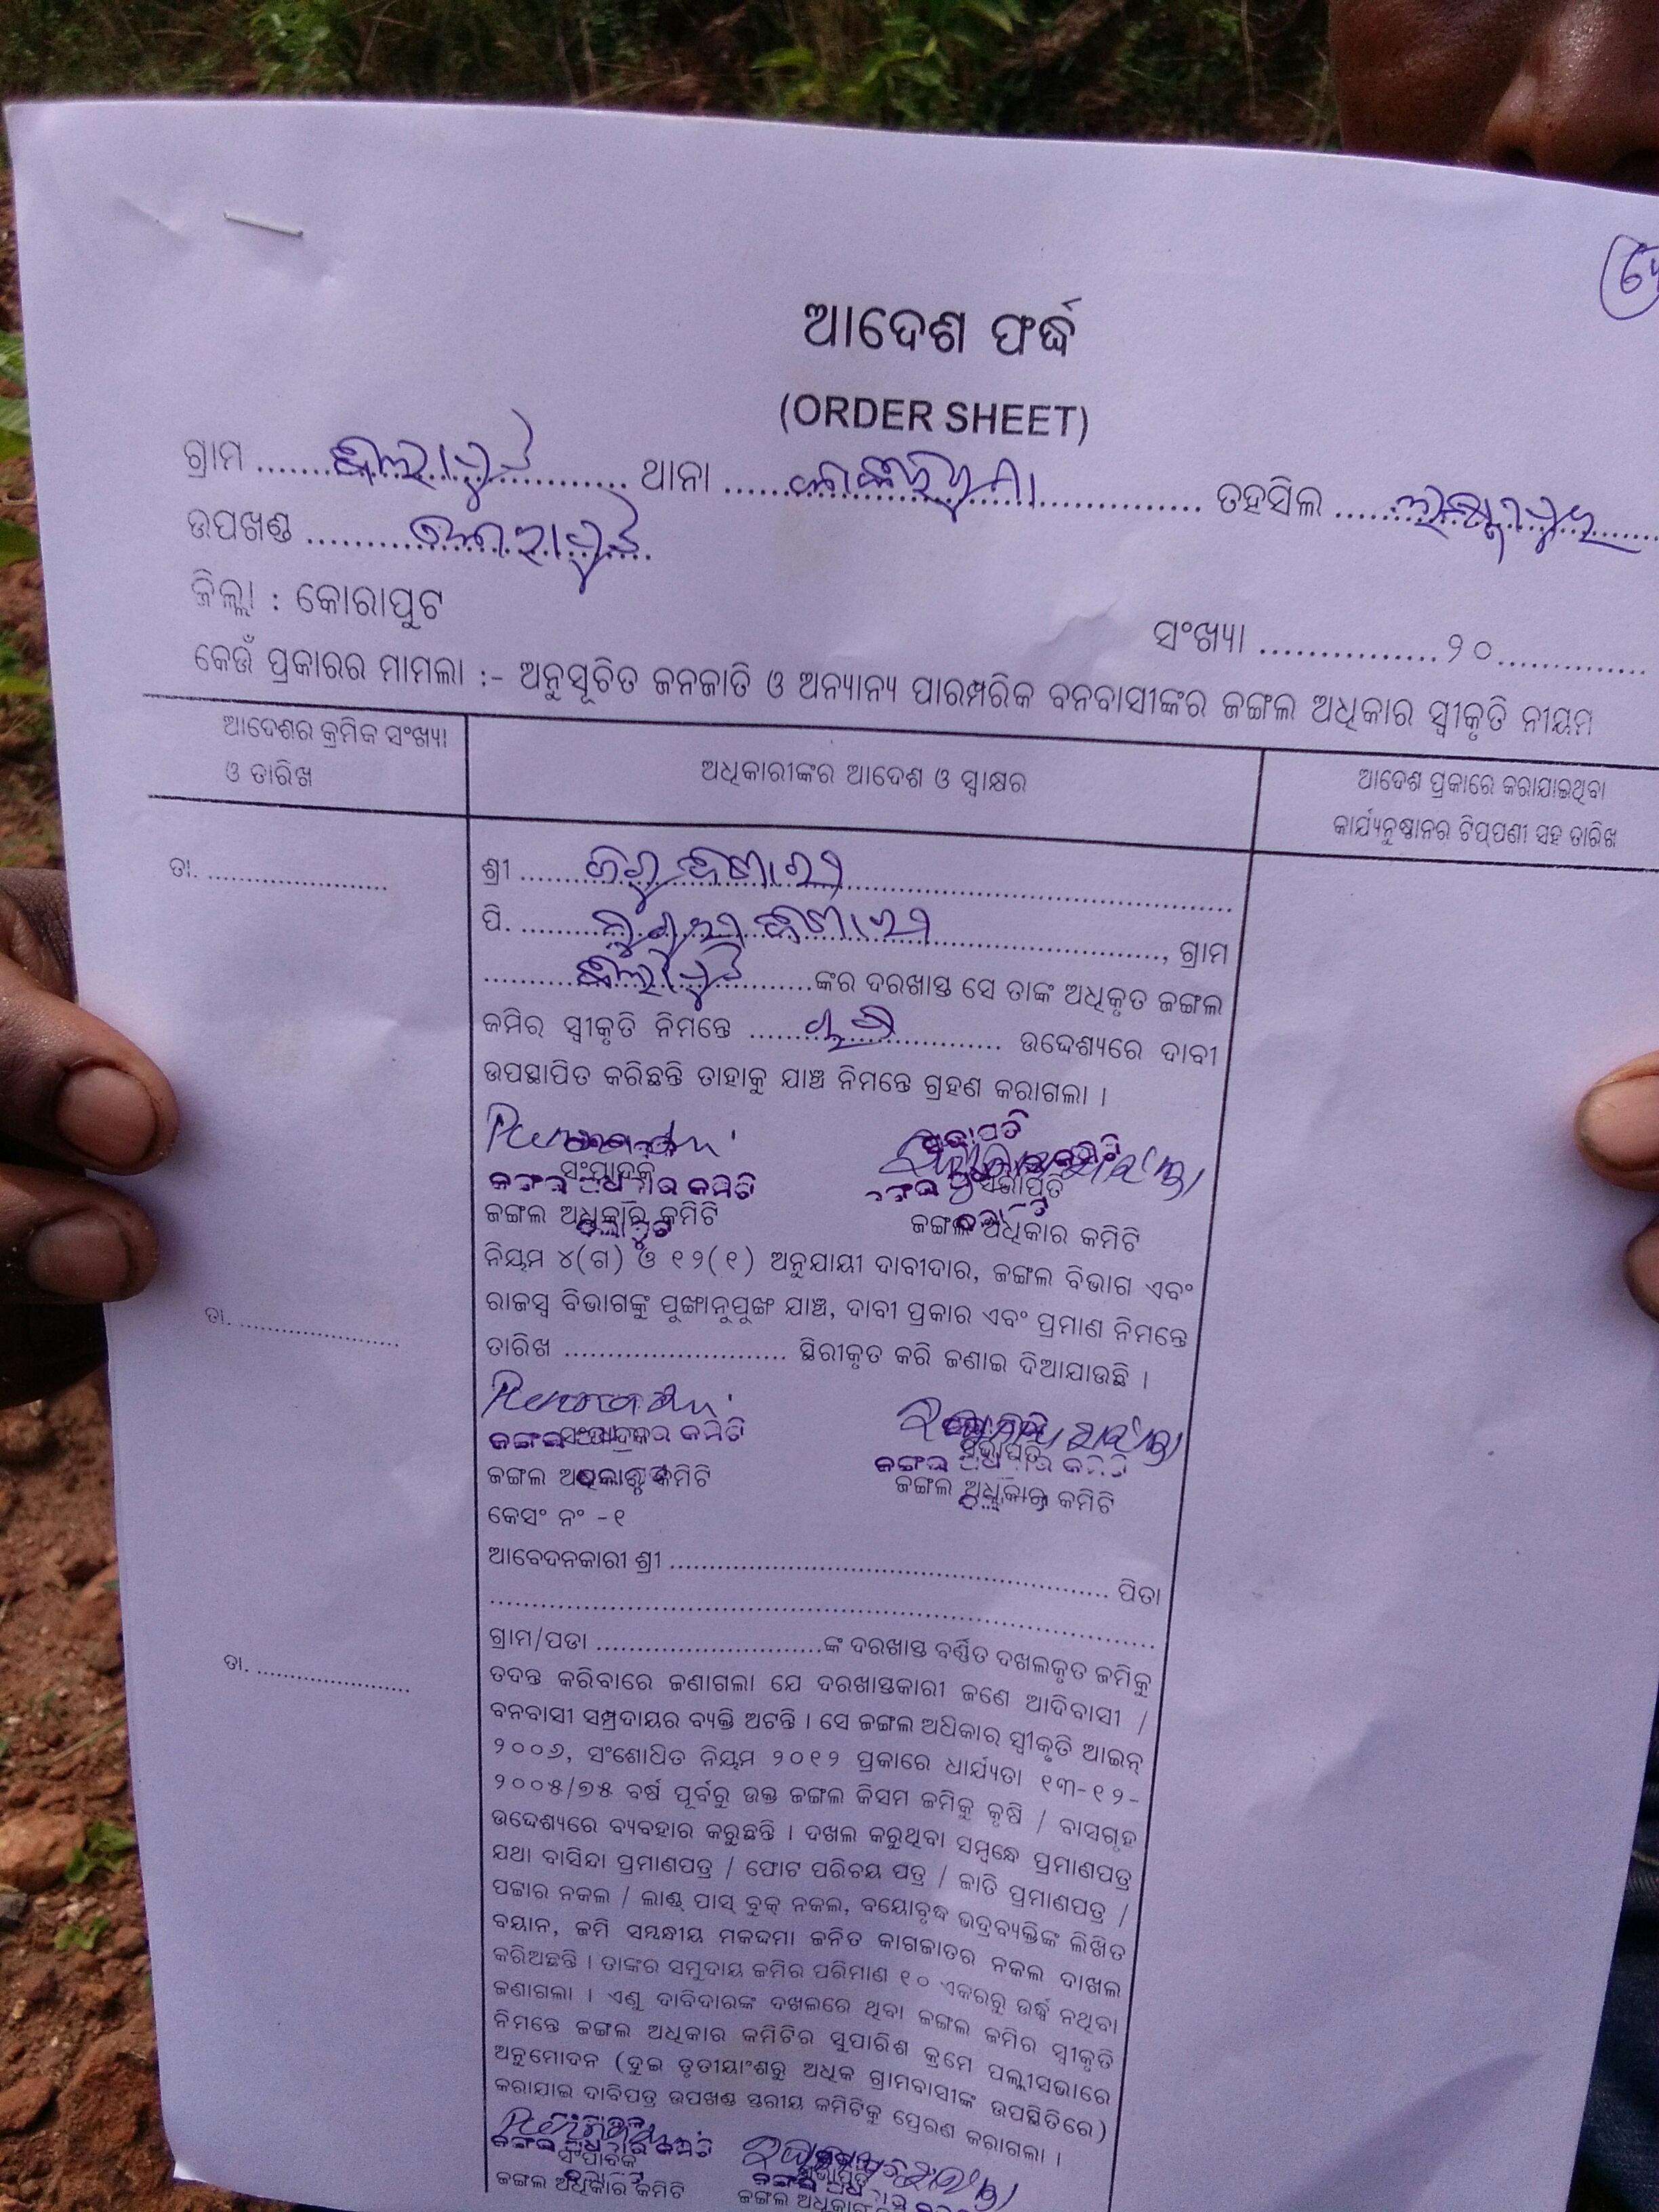 ଆଦେଶ ଫର୍ଦ୍ଦ
(ORDER SHEET)
ଗ୍ରାମ .................... ଥାନା .................... ତହସିଲ ....................
ଉପଖଣ୍ଡ ....................
ଜିଲ୍ଲା : କୋରାପୁଟ
ସଂଖ୍ୟା ............... ୨୦ ...............
କେଉଁ ପ୍ରକାରର ମାମଲା :- ଅନୁସୂଚିତ ଜନଜାତି ଓ ଅନ୍ୟାନ୍ୟ ପାରମ୍ପରିକ ବନବାସୀଙ୍କର ଜଙ୍ଗଲ ଅଧିକାର ସ୍ୱୀକୃତି ନୀୟମ
ଆଦେଶର କ୍ରମିକ ସଂଖ୍ୟା
ଓ ତାରିଖ
ଅଧିକାରୀଙ୍କର ଆଦେଶ ଓ ସ୍ୱାକ୍ଷର
ଆଦେଶ ପ୍ରକାରେ କରାଯାଇଥିବା
କାର୍ଯ୍ୟନୁଷ୍ଠାନର ଟିପ୍ପଣୀ ସହ ତାରିଖ
ତା. ....................
ଶ୍ରୀ ....................
ପି. ...................., ଗ୍ରାମ
.................... ଙ୍କର ଦରଖାସ୍ତ ସେ ତାଙ୍କ ଅଧିକୃତ ଜଙ୍ଗଲ
ଜମିର ସ୍ୱୀକୃତି ନିମନ୍ତେ .................... ଉଦ୍ଦେଶ୍ୟରେ ଦାବୀ
ଉପସ୍ଥାପିତ କରିଛନ୍ତି ତାହାକୁ ଯାଞ୍ଚ ନିମନ୍ତେ ଗ୍ରହଣ କରାଗଲା ।
ସଂପାଦକ ସଭାପତି
ଜଙ୍ଗଲ ଅଧିକାର କମିଟି ଜଙ୍ଗଲ ଅଧିକାର କମିଟି
ନିୟମ ୪(ଗ) ଓ ୧୨(୧) ଅନୁଯାୟୀ ଦାବୀଦାର, ଜଙ୍ଗଲ ବିଭାଗ ଏବଂ
ରାଜସ୍ୱ ବିଭାଗଙ୍କୁ ପୁଙ୍ଖାନୁପୁଙ୍ଖ ଯାଞ୍ଚ, ଦାବୀ ପ୍ରକାର ଏବଂ ପ୍ରମାଣ ନିମନ୍ତେ
ତା. ....................
ତାରିଖ .................... ସ୍ଥିରୀକୃତ କରି ଜଣାଇ ଦିଆଯାଉଛି ।
ସଂପାଦକ ସଭାପତି
ଜଙ୍ଗଲ ଅଧିକାର କମିଟି ଜଙ୍ଗଲ ଅଧିକାର କମିଟି
କେସଂ ନଂ -୧
ଆବେଦନକାରୀ ଶ୍ରୀ .................... ପିତା
....................
ତା. ....................
ଗ୍ରାମ/ପଡା .................... ଙ୍କ ଦରଖାସ୍ତ ବର୍ଣ୍ଣିତ ଦଖଲକୃତ ଜମିକୁ
ତଦନ୍ତ କରିବାରେ ଜଣାଗଲା ଯେ ଦରଖାସ୍ତକାରୀ ଜଣେ ଆଦିବାସୀ /
ବନବାସୀ ସମ୍ପ୍ରଦାୟର ବ୍ୟକ୍ତି ଅଟନ୍ତି । ସେ ଜଙ୍ଗଲ ଅଧିକାର ସ୍ୱୀକୃତି ଆଇନ୍
୨୦୦୬, ସଂଶୋଧିତ ନିୟମ ୨୦୧୨ ପ୍ରକାରେ ଧାର୍ଯ୍ୟତା ୧୩-୧୨-
୨୦୦୫/୭୫ ବର୍ଷ ପୂର୍ବରୁ ଉକ୍ତ ଜଙ୍ଗଲ କିସମ ଜମିକୁ କୃଷି / ବାସଗୃହ
ଉଦ୍ଦେଶ୍ୟରେ ବ୍ୟବହାର କରୁଛନ୍ତି । ଦଖଲ କରୁଥିବା ସମ୍ବନ୍ଧେ ପ୍ରମାଣପତ୍ର
ଯଥା ବାସିନ୍ଦା ପ୍ରମାଣପତ୍ର / ଫୋଟ ପରିଚୟ ପତ୍ର / ଜାତି ପ୍ରମାଣପତ୍ର /
ପଟ୍ଟାର ନକଲ / ଲାଣ୍ଡ୍ ପାସ୍ ବୁକ୍ ନକଲ, ବୟୋବୃଦ୍ଧ ଭଦ୍ରବ୍ୟକ୍ତିଙ୍କ ଲିଖିତ
ବୟାନ, ଜମି ସମ୍ବନ୍ଧୀୟ ମକଦ୍ଦମା ଜନିତ କାଗଜାତର ନକଲ ଦାଖଲ
କରିଅଛନ୍ତି । ତାଙ୍କର ସମୁଦାୟ ଜମିର ପରିମାଣ ୧୦ ଏକରରୁ ଉର୍ଦ୍ଧ୍ୱ ନଥିବା
ଜଣାଗଲା । ଏଣୁ ଦାବିଦାରଙ୍କ ଦଖଲରେ ଥିବା ଜଙ୍ଗଲ ଜମିର ସ୍ୱୀକୃତି
ନିମନ୍ତେ ଜଙ୍ଗଲ ଅଧିକାର କମିଟିର ସୁପାରିଶ କ୍ରମେ ପଲ୍ଲୀସଭାରେ
ଅନୁମୋଦନ (ଦୁଇ ତୃତୀୟାଂଶରୁ ଅଧିକ ଗ୍ରାମବାସୀଙ୍କ ଉପସ୍ଥିତିରେ)
କରାଯାଇ ଦାବିପତ୍ର ଉପଖଣ୍ଡ ସ୍ତରୀୟ କମିଟିକୁ ପ୍ରେରଣ କରାଗଲା ।
ସଂପାଦକ ସଭାପତି
ଜଙ୍ଗଲ ଅଧିକାର କମିଟି ଜଙ୍ଗଲ ଅଧିକାର